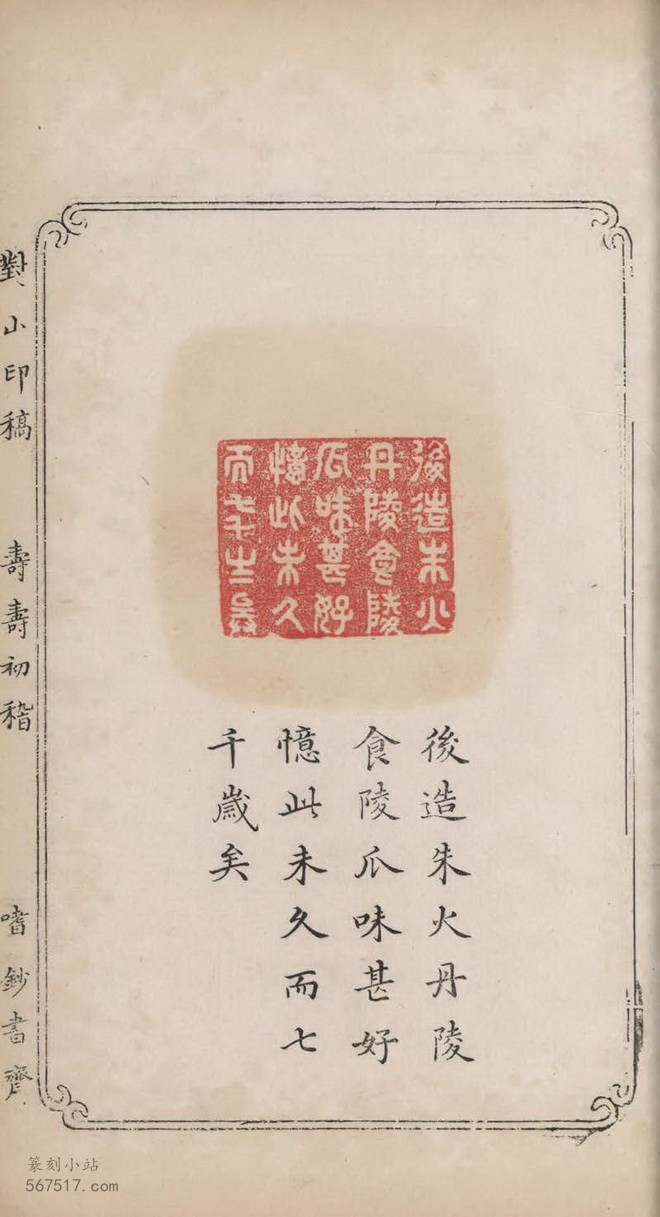 後造朱火
丹陵食陵
瓜味甚好
憶此未久
而七千歲矣
後造朱火丹陵
食陵瓜味甚好
憶此未久而七
千歲矣
對山印稿 壽壽初稽 嗜鈔書齋
篆刻小站
567517.com